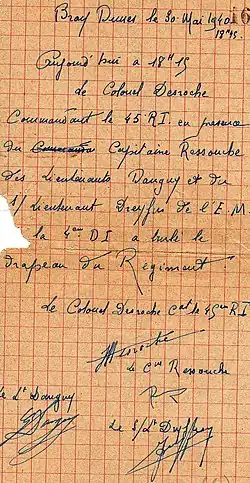 Bray Dunes le 30 Mai 1940
18H15
Aujourd'hui a 18H15
le Colonel Desroche
Commandant le 45 RI. en presence
du Capitaine Ressouche
des lieutenants Danguy et du
S/ lieutenant Dreyfus de l'E.M
la 4em DI a brulé le
drapeau du Régiment
le Colonel Desroche Cdt le 45em RI
Desroche
le Cne Ressouche
le Lt Danguy
le S/Lt Dreyfus